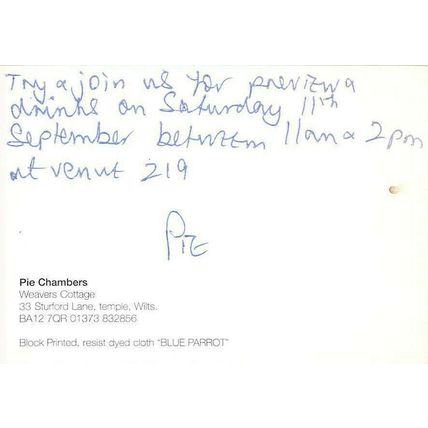 Try & join us for preview &
drinks on Saturday 11th
September between 11am & 2pm
at venue 219
Pie
Pie Chambers
Weavers Cottage
33 Sturford Lane, temple, Wilts.
BA12 7QR 01373 832856
Block Printed, resist dyed cloth "BLUE PARROT"